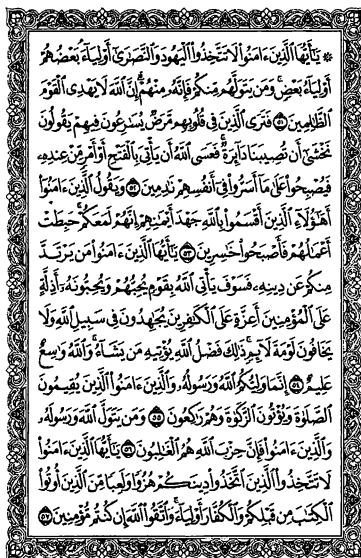 ۞ يَٰٓأَيُّهَا ٱلَّذِينَ ءَامَنُوا۟ لَا تَتَّخِذُوا۟ ٱلْيَهُودَ وَٱلنَّصَٰرَىٰٓ أَوْلِيَآءَ بَعْضُهُمْ
أَوْلِيَآءُ بَعْضٍ وَمَن يَتَوَلَّهُم مِّنكُمْ فَإِنَّهُۥ مِنْهُمْ إِنَّ ٱللَّهَ لَا يَهْدِى ٱلْقَوْمَ
ٱلظَّٰلِمِينَ ٥١ فَتَرَى ٱلَّذِينَ فِى قُلُوبِهِم مَّرَضٌ يُسَٰرِعُونَ فِيهِمْ يَقُولُونَ
نَخْشَىٰٓ أَن تُصِيبَنَا دَآئِرَةٌ فَعَسَى ٱللَّهُ أَن يَأْتِىَ بِٱلْفَتْحِ أَوْ أَمْرٍ مِّنْ عِندِهِۦ
فَيُصْبِحُوا۟ عَلَىٰ مَآ أَسَرُّوا۟ فِىٓ أَنفُسِهِمْ نَٰدِمِينَ ٥٢ وَيَقُولُ ٱلَّذِينَ ءَامَنُوٓا۟
أَهَٰٓؤُلَآءِ ٱلَّذِينَ أَقْسَمُوا۟ بِٱللَّهِ جَهْدَ أَيْمَٰنِهِمْ إِنَّهُمْ لَمَعَكُمْ حَبِطَتْ
أَعْمَٰلُهُمْ فَأَصْبَحُوا۟ خَٰسِرِينَ ٥٣ يَٰٓأَيُّهَا ٱلَّذِينَ ءَامَنُوا۟ مَن يَرْتَدَّ
مِنكُمْ عَن دِينِهِۦ فَسَوْفَ يَأْتِى ٱللَّهُ بِقَوْمٍ يُحِبُّهُمْ وَيُحِبُّونَهُۥٓ أَذِلَّةٍ
عَلَى ٱلْمُؤْمِنِينَ أَعِزَّةٍ عَلَى ٱلْكَٰفِرِينَ يُجَٰهِدُونَ فِى سَبِيلِ ٱللَّهِ وَلَا
يَخَافُونَ لَوْمَةَ لَآئِمٍ ذَٰلِكَ فَضْلُ ٱللَّهِ يُؤْتِيهِ مَن يَشَآءُ وَٱللَّهُ وَٰسِعٌ
عَلِيمٌ ٥٤ إِنَّمَا وَلِيُّكُمُ ٱللَّهُ وَرَسُولُهُۥ وَٱلَّذِينَ ءَامَنُوا۟ ٱلَّذِينَ يُقِيمُونَ
ٱلصَّلَوٰةَ وَيُؤْتُونَ ٱلزَّكَوٰةَ وَهُمْ رَٰكِعُونَ ٥٥ وَمَن يَتَوَلَّ ٱللَّهَ وَرَسُولَهُۥ
وَٱلَّذِينَ ءَامَنُوا۟ فَإِنَّ حِزْبَ ٱللَّهِ هُمُ ٱلْغَٰلِبُونَ ٥٦ يَٰٓأَيُّهَا ٱلَّذِينَ ءَامَنُوا۟
لَا تَتَّخِذُوا۟ ٱلَّذِينَ ٱتَّخَذُوا۟ دِينَكُمْ هُزُوًا وَلَعِبًا مِّنَ ٱلَّذِينَ أُوتُوا۟
ٱلْكِتَٰبَ مِن قَبْلِكُمْ وَٱلْكُفَّارَ أَوْلِيَآءَ وَٱتَّقُوا۟ ٱللَّهَ إِن كُنتُم مُّؤْمِنِينَ ٥٧